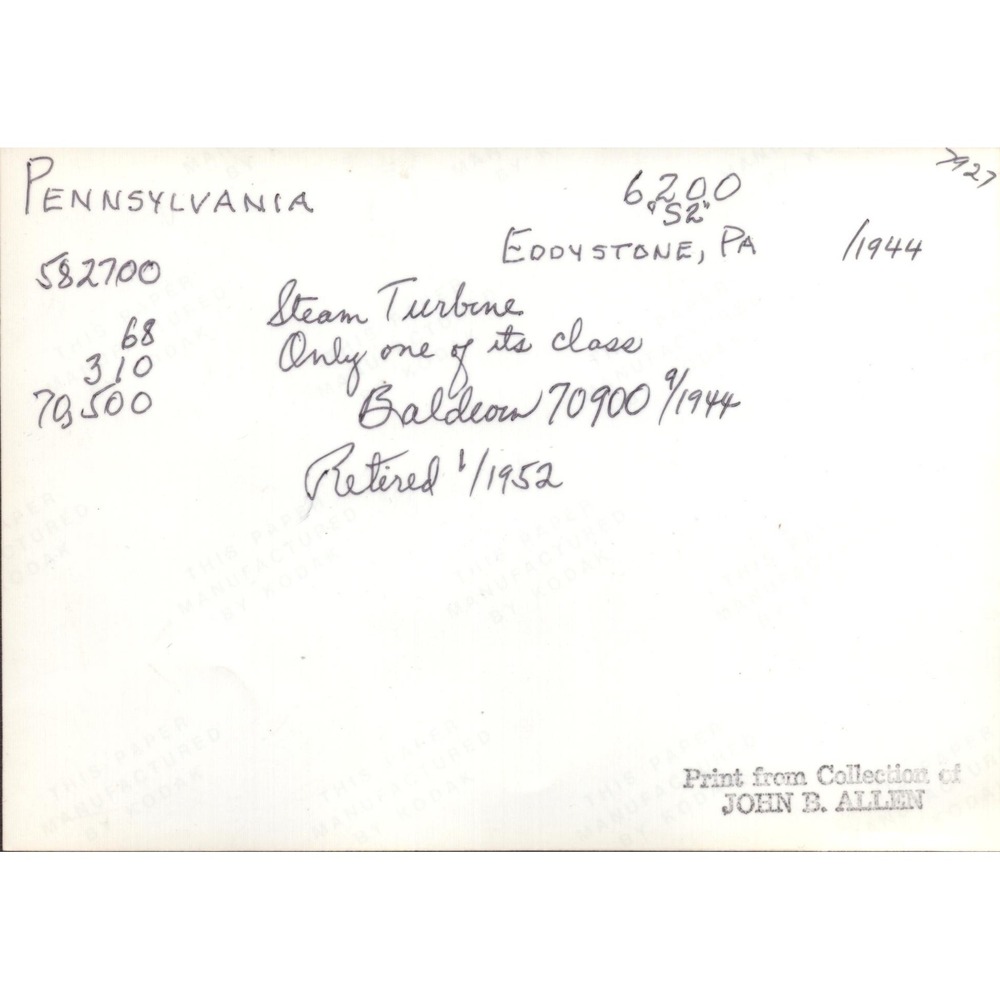 PENNSYLVANIA
6200
7927
"S2"
EDDYSTONE, PA /1944
582700
Steam Turbine
68
Only one of its class
310
70,500
Baldwin 70900 9/1944
Retired 1/1952
THIS PAPER
MANUFACTURED
BY KODAK
Print from Collection of
JOHN B. ALLEN